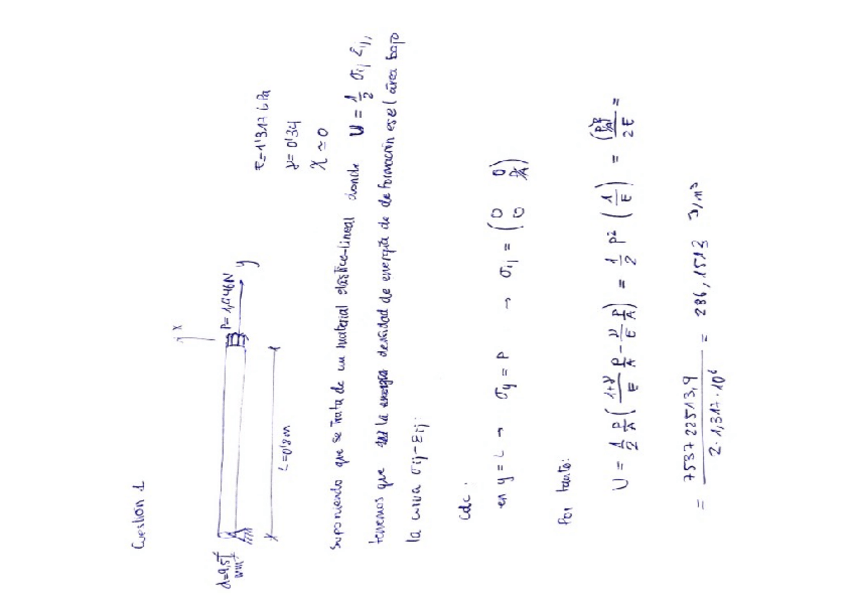 Cuestion 1
d=9,5
mm
x
P=1,046N
y
L=0'8m
E=1'317 GPa
γ=0'34
χ≃0
Suponiendo que se trata de un material elástico-lineal donde U = 1/2 σij εij,
tenemos que la energía densidad de energía de deformación es el área bajo
la curva σij-εij.
Cdc:
en y=L → σy = P → σij = (0 0
0 P/A)
Por tanto:
U = 1/2 P/A (1+ν/E P/A - ν/E P/A) = 1/2 P² (1/E) = =
= 753722513,9 / 2·1,317·10⁶ = 286,1513 J/m³